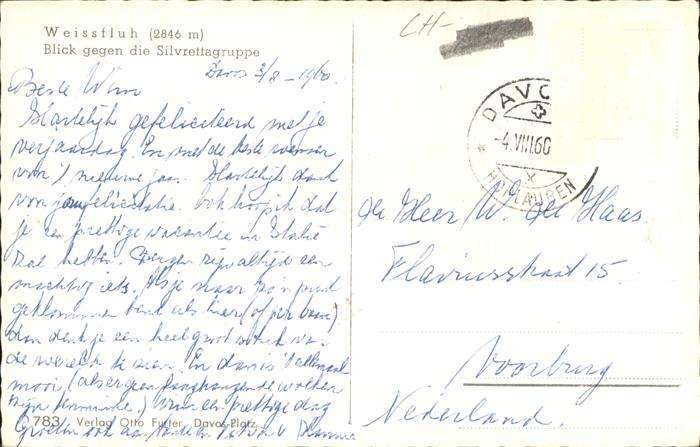 Weissfluh (2846 m)
Blick gegen die Silvrettagruppe
CH-
Davos 3/8-1960.
Beste Wim
Hartelijk gefeliciteerd met je
verjaardag. En met de beste wensen
voor 't nieuwe jaar. Hartelijk dank
voor jouw felicitatie. Ook hoop ik dat
je een prettige vacantie in Italië
zal hebben. Bergen zijn altijd een
machtig iets. Als je naar zo'n punt
geklommen bent als hier (of per baan)
dan denk je een heel groot stuk van
de wereld te zien. En dan is 't allemaal
mooi, (als er geen laaghangende wolken
zijn tenminste.) Voor een prettige dag
Groeten ook aan
783 Verlag Otto Furter, Davos-Platz
DAVOS
-4.VIII.60
de Heer W. der Haas
Flaviusstraat 15.
Voorburg
Nederland.